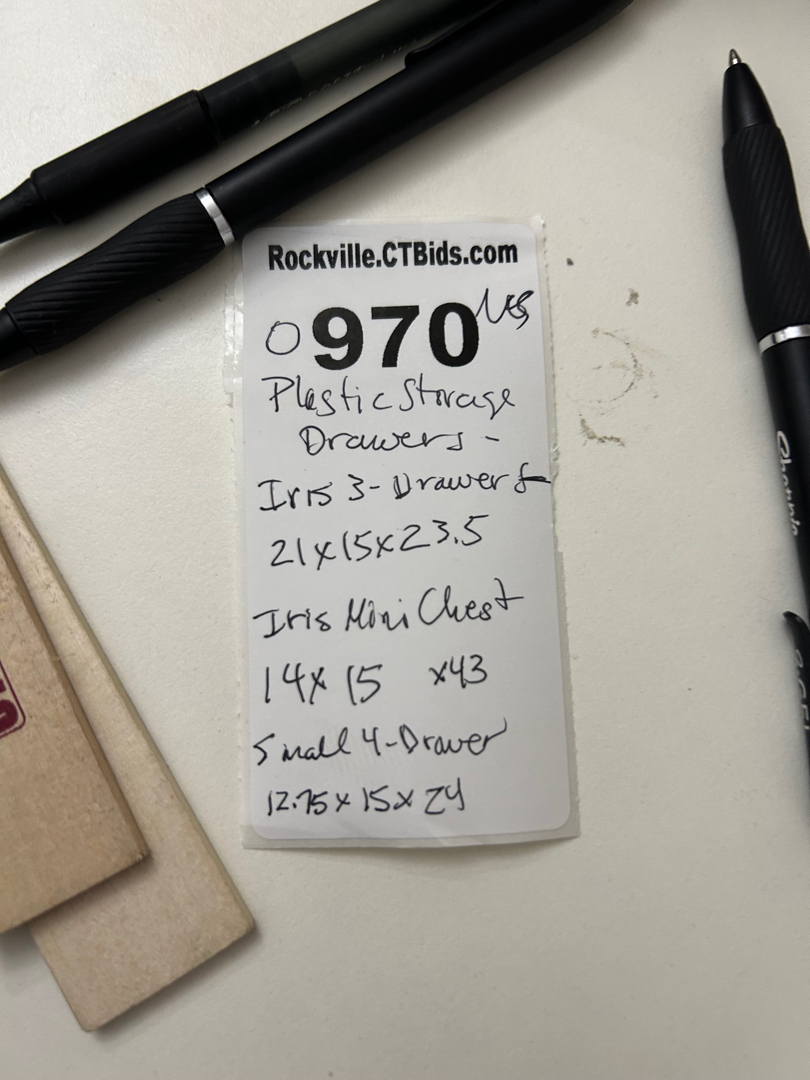 Rockville.CTBids.com
O 970
Plastic Storage
Drawers -
Iris 3-Drawer
21x15x23.5
Iris Mini Chest
14x 15 x43
Small 4-Drawer
12.75 x 15x 24